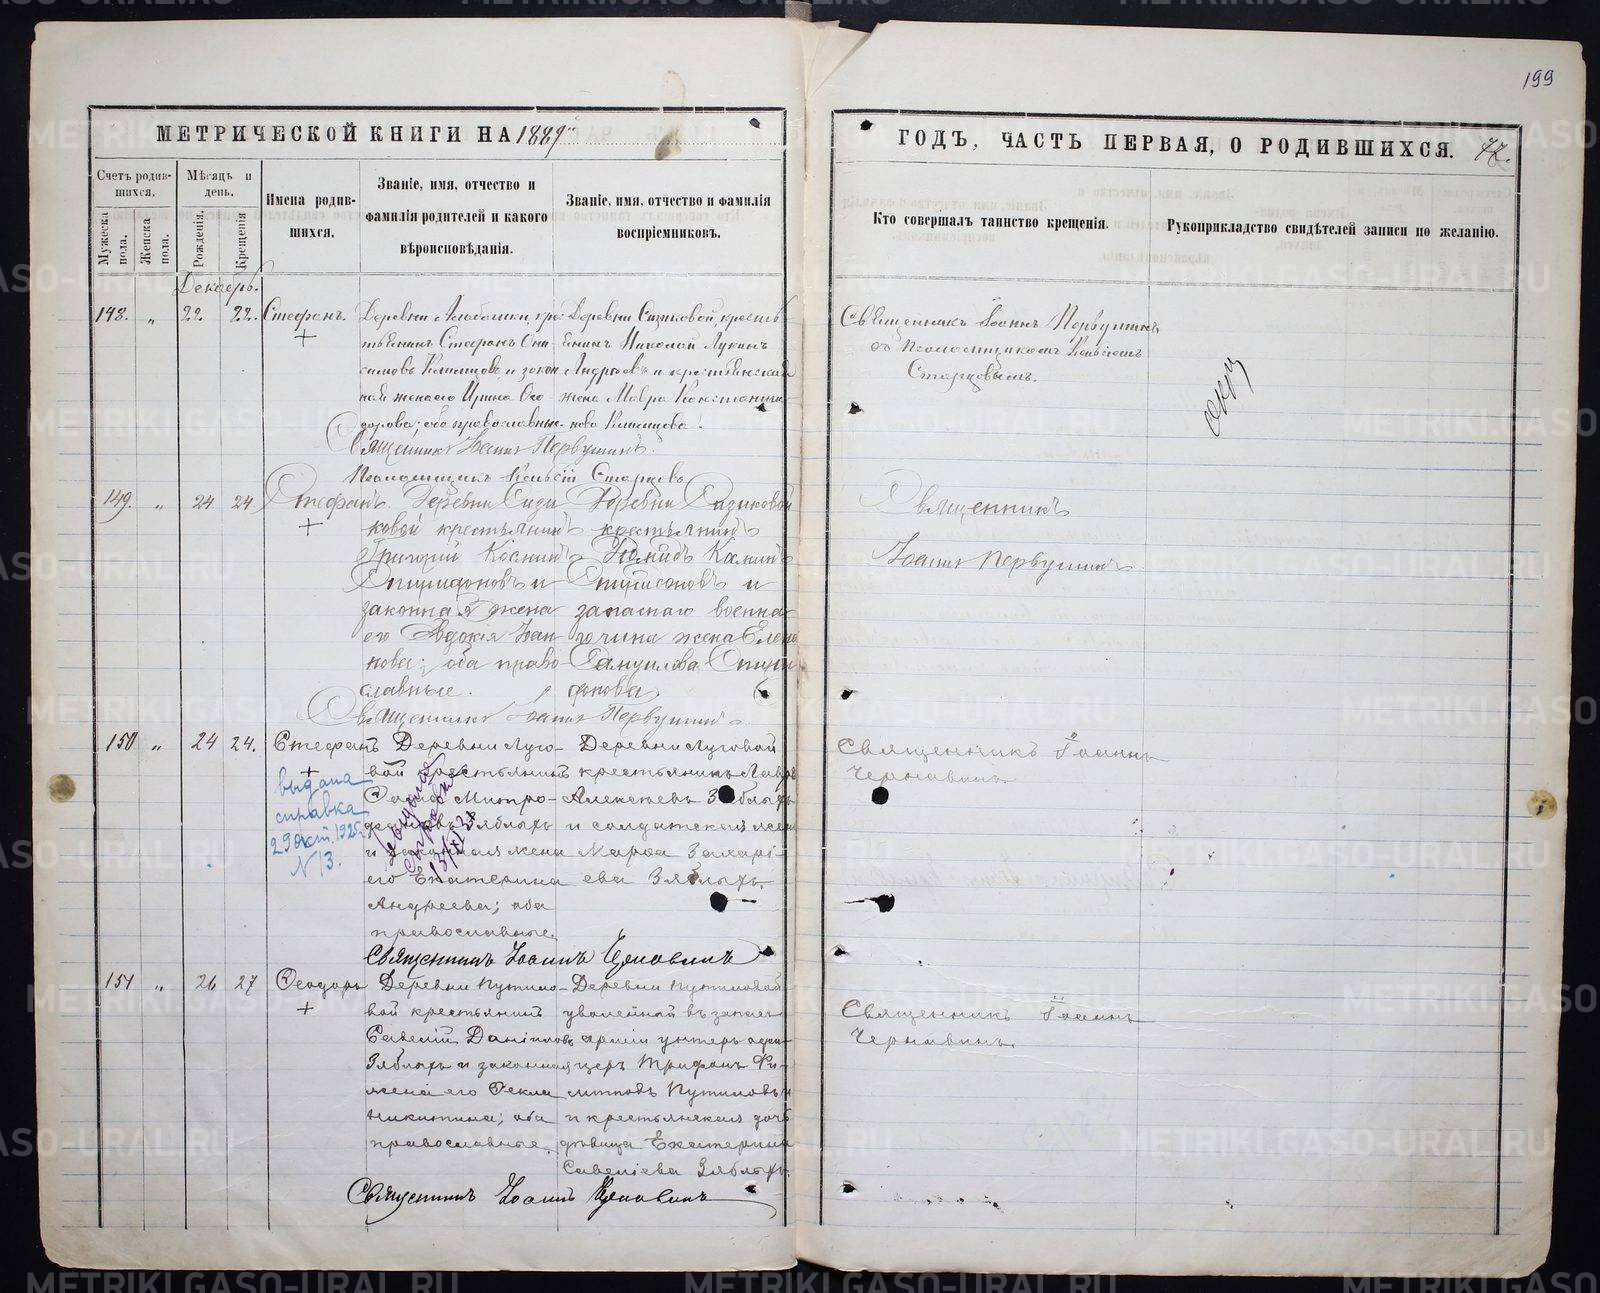 199
МЕТРИЧЕСКОЙ КНИГИ НА 1889 ГОДЪ, ЧАСТЬ ПЕРВАЯ, О РОДИВШИХСЯ.
Счетъ родившихся.
Мужеска пола.
Женска пола.
Мѣсяцъ и день.
Рожденія.
Крещенія
Имена родившихся.
Званіе, имя, отчество и фамилія родителей и какого вѣроисповѣданія.
Званіе, имя, отчество и фамилія воспріемниковъ.
Кто совершалъ таинство крещенія.
Рукоприкладство свидѣтелей записи по желанію.
Декабрь.
148. " 22 22. Стефанъ.
Деревни Алабашки, кре-
стьянинъ Стефанъ Они-
симовъ Клещовъ и закон
ная жена его Ирина Ѳео
дорова; оба православные.
Деревни Сизиковой, крестья
янинъ Николай Лукинъ
Андреевъ и крестьянская
жена Мавра Константи
нова Клещова.
Священникъ Іоаннъ Первушинъ
съ Псаломщикомъ
Старцовымъ.
Священникъ Іоаннъ Первушинъ.
Псаломщикъ Старцовъ
149. " 24 24. Стефанъ.
Деревни Сизи
ковой крестьянинъ
Григорій Косминъ
Спиридоновъ и
законная жена
его Евдокія Іоан
нова; оба право
славные.
Деревни Сизиковой
крестьянинъ
Косминъ
Спиридоновъ и
запаснаго военна
го чина жена Елена
Самуилова Спири
донова
Священникъ
Іоаннъ Первушинъ.
Священникъ Іоаннъ Первушинъ.
150 " 24 24. Стефанъ
Деревни Луго-
вой крестьянинъ
Митро-
фановъ Зяблыхъ
и законная жена
его Екатерина
Андреева; оба
православные.
Деревни Луговой
крестьянинъ
Алексѣевъ Зяблыхъ
и солдатская жена
Марѳа Захарі-
ева Зяблыхъ.
Священникъ Іоаннъ
Чернавинъ
выдана
справка
29 окт. 1925
N 13.
Священникъ Іоаннъ Чернавинъ
151 " 26 27 Ѳеодоръ
Деревни Путило-
вой крестьянинъ
Савелій Даніиловъ
Зяблыхъ и законная
жена его Ѳекла
Никитина; оба
православные.
Деревни Путиловой
уволенной въ запасъ
арміи унтеръ офи-
церъ Трифонъ Фи-
липповъ Путиловъ
и крестьянская дочь
дѣвица Екатерина
Савеліева Зяблыхъ.
Священникъ Іоаннъ
Чернавинъ.
Священникъ Іоаннъ Чернавинъ
METRIKI.GASO-URAL.RU